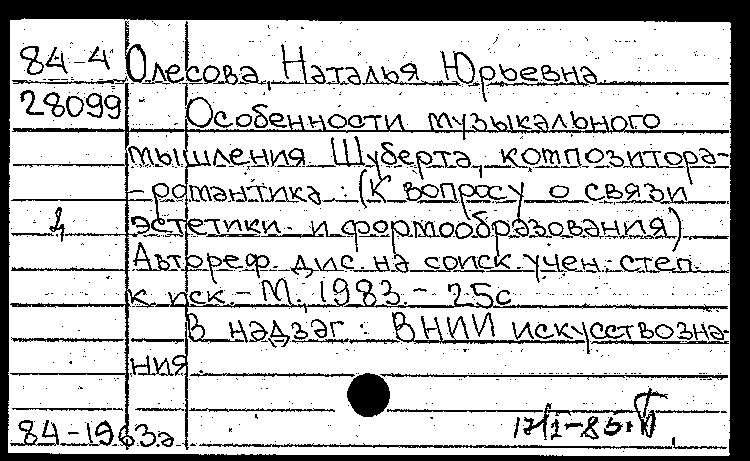 84-4 Олесова, Наталья Юрьевна
28099 Особенности музыкального
мышления Шуберта, композитора-
-романтика : (К вопросу о связи
эстетики и формообразования)
Автореф. дис. на соиск. учен. степ.
к иск. - М., 1983. - 25с
В надзаг : ВНИИ искусствозна-
ния.
84-1963а